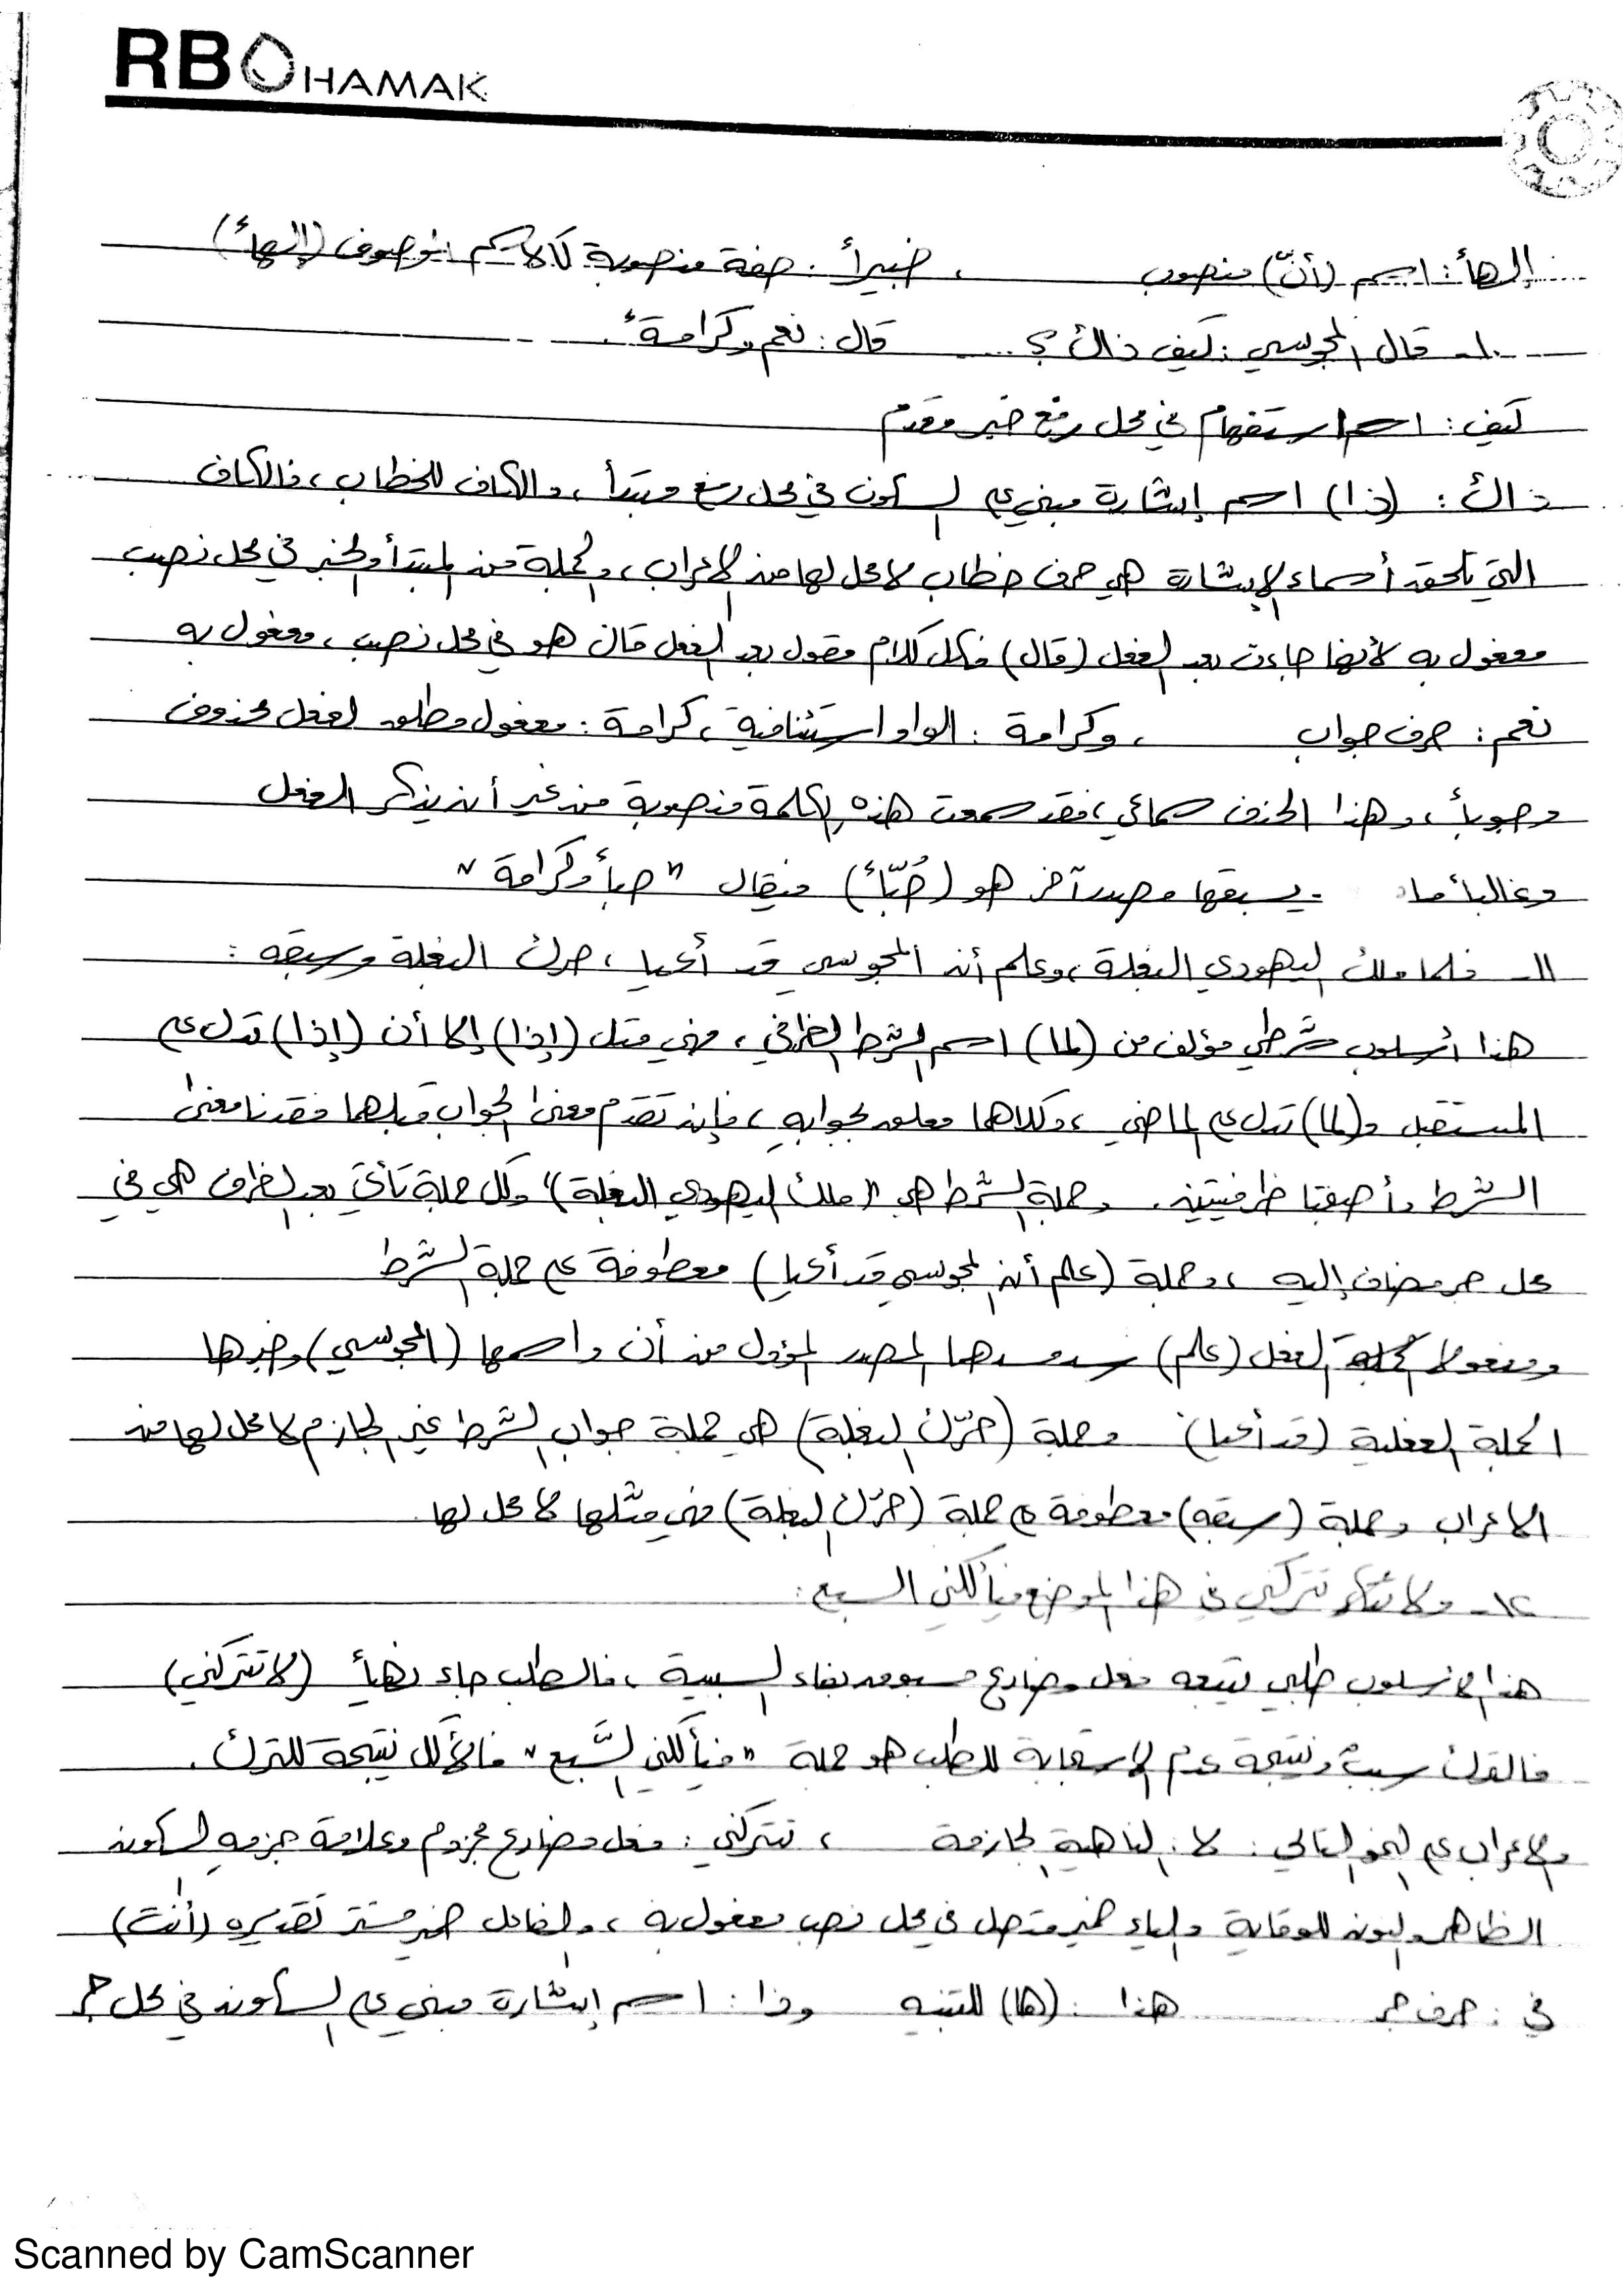 RB HAMAK
إلهاً: اسم (أنّ) منصوب ، خبيراً: صفة منصوبة كالاسم الموصوف (إلهاً)
١٠- قال المجوسي: كيف ذاك؟ قال: نعم وكرامةً.
كيف: اسم استفهام في محل رفع خبر مقدم
ذاك: (ذا) اسم إشارة مبني على السكون في محل رفع مبتدأ، والكاف للخطاب، فالكاف
التي تلحق أسماء الإشارة هي حرف خطاب لا محل لها من الإعراب، والجملة من المبتدأ والخبر في محل نصب
مفعول به لأنها جاءت بعد الفعل (قال) فكل كلام مقول بعد الفعل قال هو في محل نصب، مفعول به
نعم: حرف جواب ، وكرامة: الواو استئنافية، كرامة: مفعول مطلق لفعل محذوف
وجوباً، وهذا الحذف سماعي، فقد سمعت هذه الكلمة منصوبة من غير أن يذكر الفعل
وغالباً ما يسبقها مصدر آخر هو (حُبّاً) فيقال "حباً وكرامة"
١١- فلما ملك اليهودي البغلة، وعلم أن المجوسي قد أعيا، حرك البغلة وسبقه:
هذا أسلوب شرطي مؤلف من (لما) اسم الشرط الظرفي، فهي مثل (إذا) إلا أن (إذا) تدل على
المستقبل و(لما) تدل على الماضي، وكلاهما معلق بجوابه، فإن تقدم معنى الجواب قبلهما فقدنا معنى
الشرط وأصبحتا ظرفيتين. وجملة الشرط هي "(ملك اليهودي البغلة)" وكل جملة تأتي بعد الظرف هي في
محل جر مضاف إليه، وجملة (علم أن المجوسي قد أعيا) معطوفة على جملة الشرط
ومفعولا الفعل (علم) سد مسدهما المصدر المؤول من أن واسمها (المجوسي) وخبرها
الجملة الفعلية (قد أعيا) وجملة (حرّك البغلة) هي جملة جواب الشرط غير الجازم لا محل لها من
الاعراب وجملة (سبقه) معطوفة على جملة (حرّك البغلة) فهي مثلها لا محل لها
١٢- ولا تتركني في هذا الموضع فيأكلني السبع:
هذا الأسلوب طلبي يتبعه فعل مضارع مسبوق بفاء السببية، فالطلب جاء نهياً (لا تتركني)
فالترك سبب ونتيجة عدم الاستجابة للطلب هو جملة "فيأكلني السَّبع" فالأكل نتيجة للترك.
والاعراب على النحو التالي: لا: الناهية الجازمة ، تتركني: فعل مضارع مجزوم وعلامة جزمه السكون
الظاهر والنون للوقاية والياء ضمير متصل في محل نصب مفعول به، والفاعل ضمير مستتر تقديره (أنت)
في: حرف جر هذا: (ها) للتنبيه وذا: اسم إشارة مبني على السكون في محل جر
Scanned by CamScanner